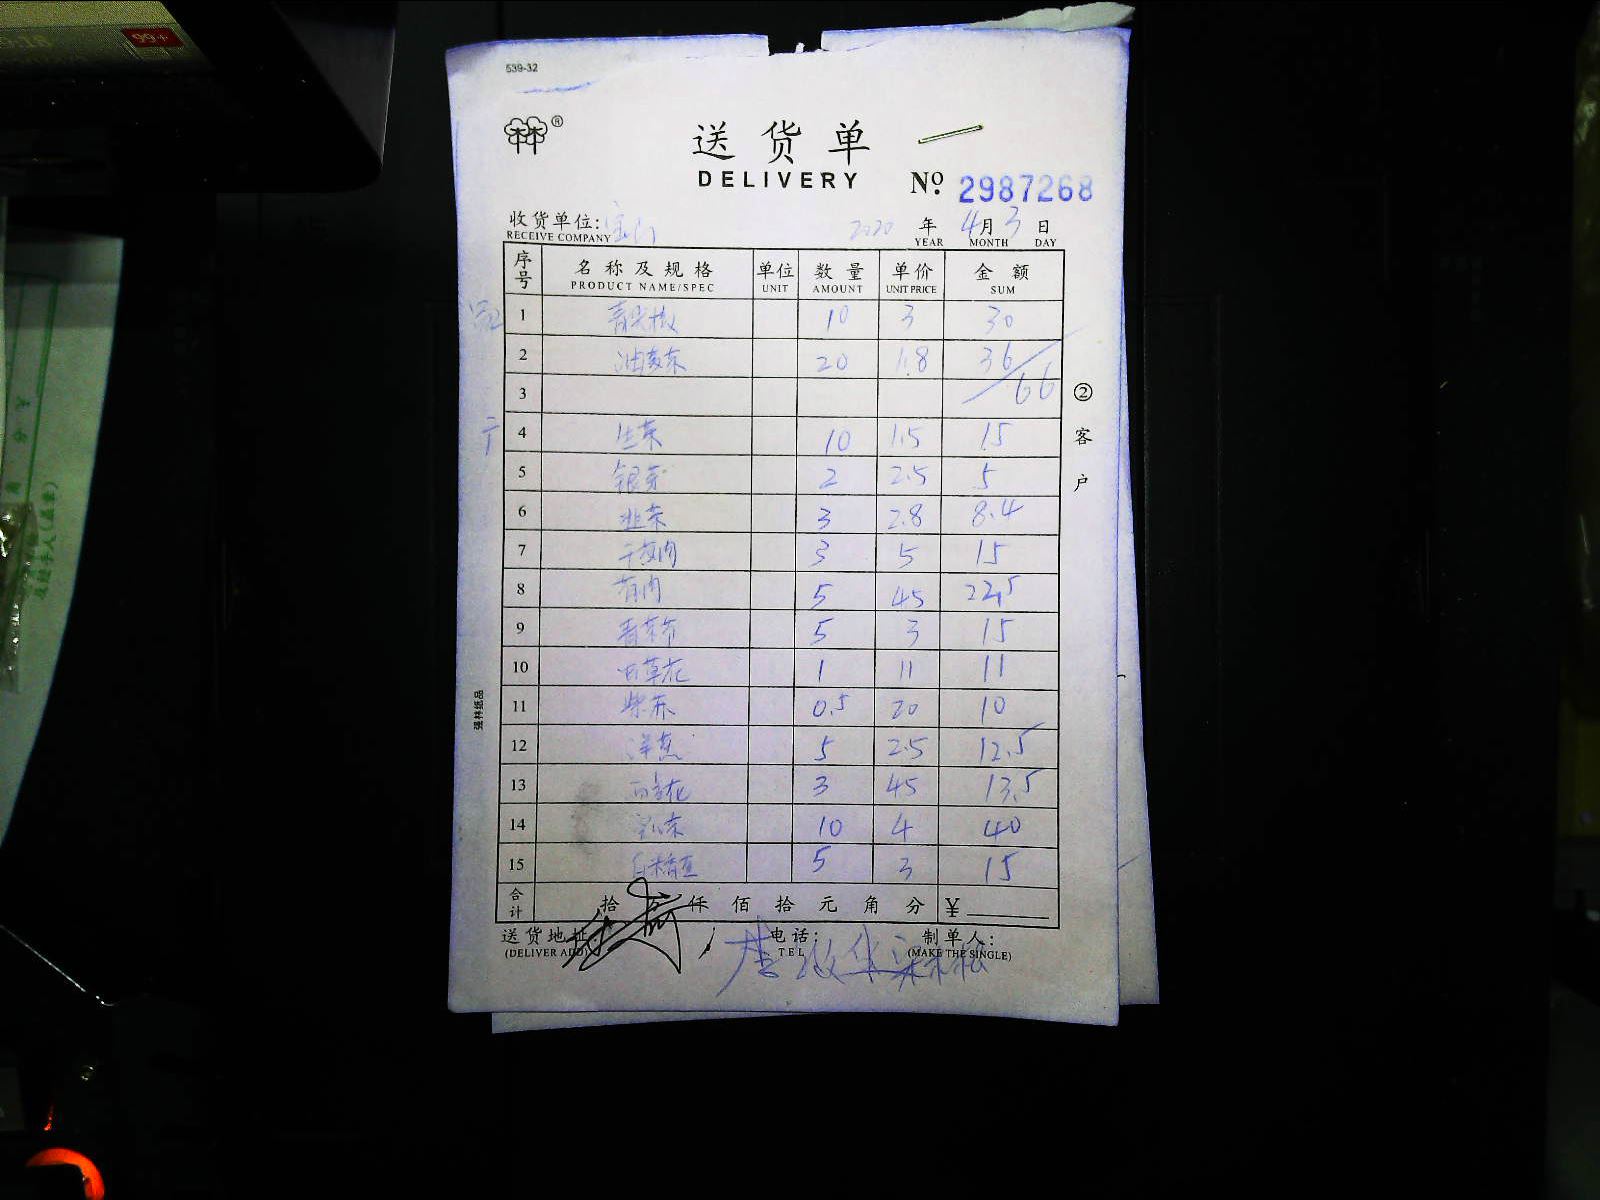 99+
539-32
®
送货单
DELIVERY
No. 2987268
收货单位:
RECEIVE COMPANY
2020 年 4月 3 日
YEAR MONTH DAY
序号 名称及规格 单位 数量 单价 金额
PRODUCT NAME/SPEC UNIT AMOUNT UNIT PRICE SUM
1 青尖椒 10 3 30
2 油麦菜 20 1.8 36
3 66
4 生菜 10 1.5 15
5 银芽 2 2.5 5
6 韭菜 3 2.8 8.4
7 3 5 15
8 5 45 22.5
9 5 3 15
10 1 11 11
11 0.5 20 10
12 5 2.5 12.5
13 3 45 13.5
14 10 4 40
15 5 3 15
合计 拾 仟 佰 拾 元 角 分 ¥
送货地址: 电话: 制单人:
(DELIVER ADD) TEL (MAKE THE SINGLE)
②客户
强林纸品